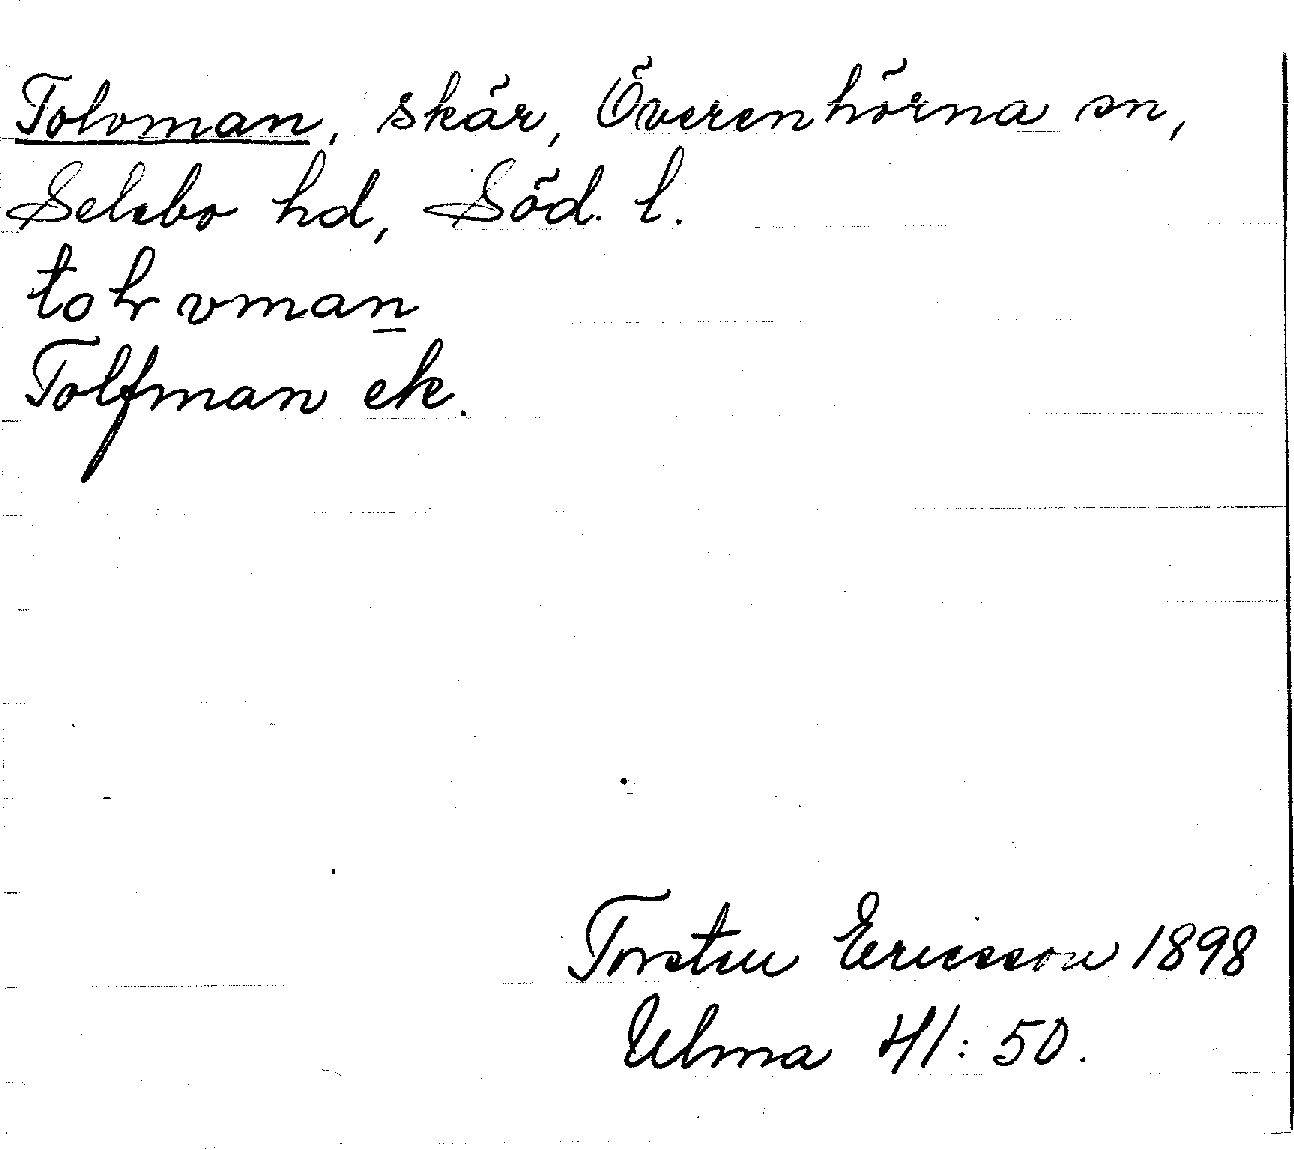 Tolvman, skär, Överenhörna sn,
Selebo hd, Söd. l.
Tolfman ek.
Torsten Ericsson 1898
Ulma 41:50.